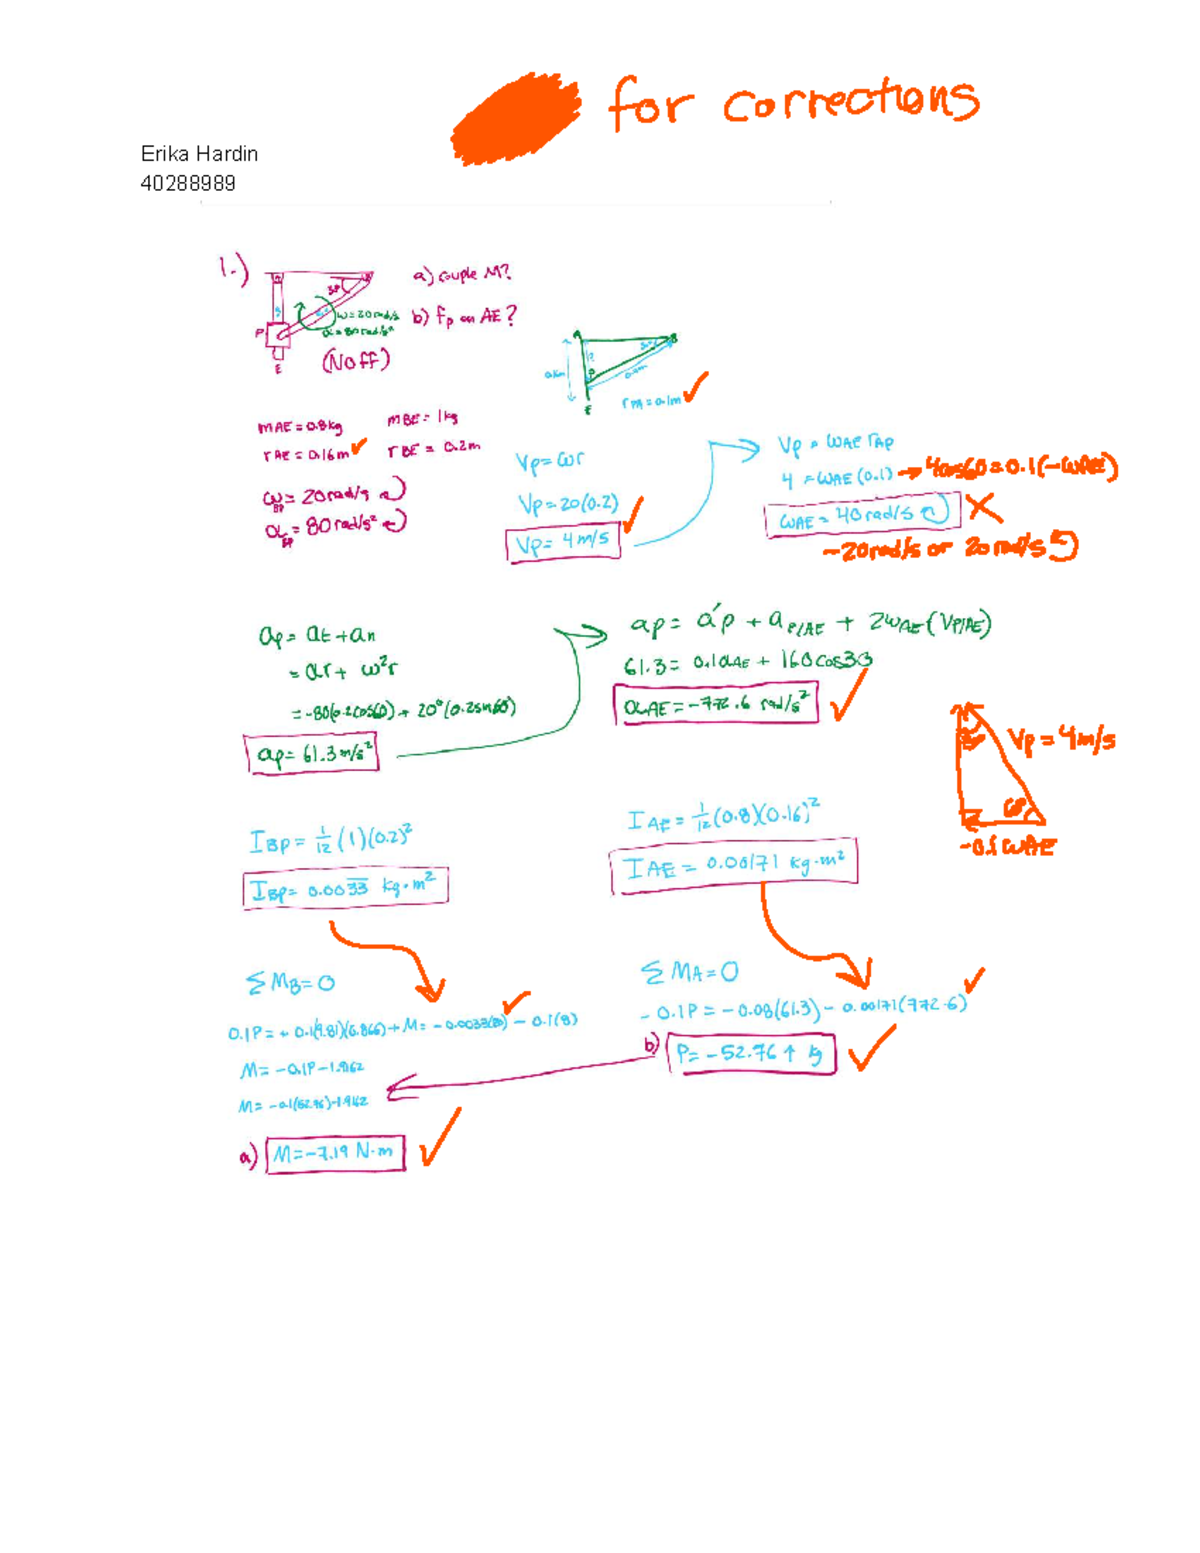 for corrections
Erika Hardin
40288989
1.)
a) couple M?
b) Fp on AE?
P
E
30°
ω=20rad/s
α=80rad/s²
(No ff)
A
B
P
E
rPA=0.1m
mAE=0.8kg
mBE=1kg
rAE=0.16m
rBE=0.2m
ωBP=20rad/s
αBP=80rad/s²
Vp=ωr
Vp=20(0.2)
Vp=4m/s
Vp=ωAE rAP
4=ωAE(0.1) → 4cos60=0.1(-ωAE)
ωAE=40rad/s
-20rad/s or 20rad/s
ap=at+an
=αr+ω²r
=-80(0.2cos60)+20²(0.2sin60)
ap=61.3m/s²
ap=a'p+aP/AE+2ωAE(VP/AE)
61.3=0.1αAE+160cos30
αAE=-772.6 rad/s²
Vp=4m/s
60
-0.1ωAE
IBP=1/12(1)(0.2)²
IBP=0.0033 kg·m²
IAE=1/12(0.8)(0.16)²
IAE=0.00171 kg·m²
ΣMB=0
0.1P=+0.1(9.81)(0.866)+M=-0.0033(80)-0.1(8)
M=-0.1P-1.9162
M=-0.1(52.76)-1.9162
a) M=-7.19 N·m
ΣMA=0
-0.1P=-0.08(61.3)-0.00171(772.6)
b) P=-52.76↑ kg